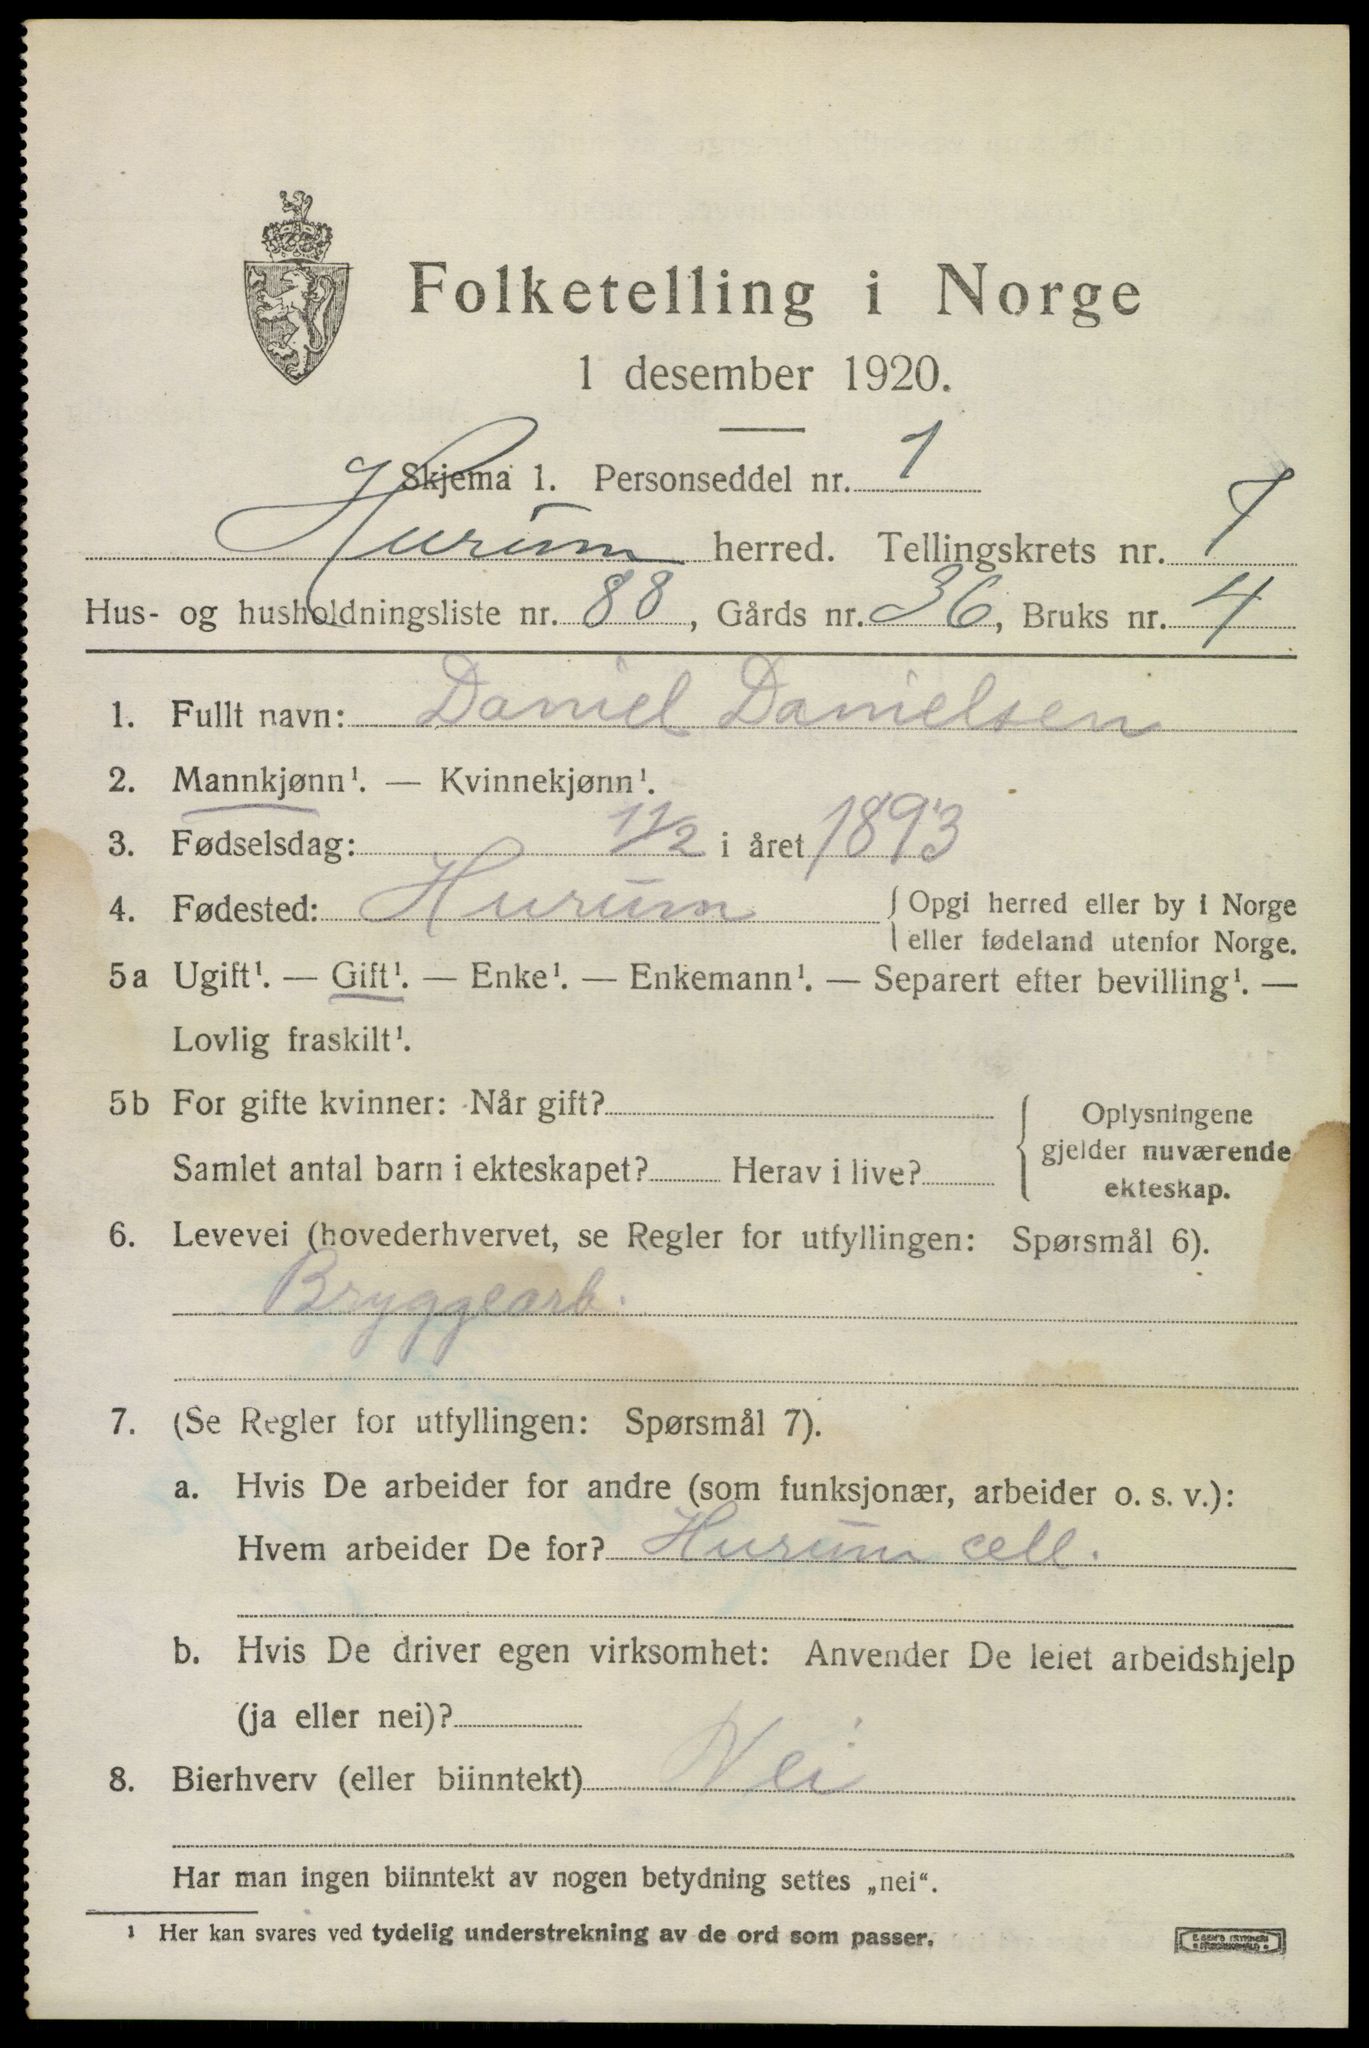 Folketelling i Norge
1 desember 1920.
Skjema 1. Personseddel nr. 1
Hurum herred. Tellingskrets nr. 7
Hus- og husholdningsliste nr. 88, Gårds nr. 36, Bruks nr. 4
1. Fullt navn: Daniel Danielsen
2. Mannkjønn¹. — Kvinnekjønn¹.
3. Fødselsdag: 11/2 i året 1893
4. Fødested: Hurum { Opgi herred eller by i Norge
eller fødeland utenfor Norge.
5a Ugift¹. — Gift¹. — Enke¹. — Enkemann¹. — Separert efter bevilling¹. —
Lovlig fraskilt¹.
5b For gifte kvinner: Når gift? { Oplysningene
gjelder nuværende
Samlet antal barn i ekteskapet? Herav i live?
ekteskap.
6. Levevei (hovederhvervet, se Regler for utfyllingen: Spørsmål 6).
Bryggearb.
7. (Se Regler for utfyllingen: Spørsmål 7).
a. Hvis De arbeider for andre (som funksjonær, arbeider o. s. v.):
Hvem arbeider De for? Hurum cell.
b. Hvis De driver egen virksomhet: Anvender De leiet arbeidshjelp
(ja eller nei)?
8. Bierhverv (eller biinntekt) Nei
Har man ingen biinntekt av nogen betydning settes „nei“.
¹ Her kan svares ved tydelig understrekning av de ord som passer.